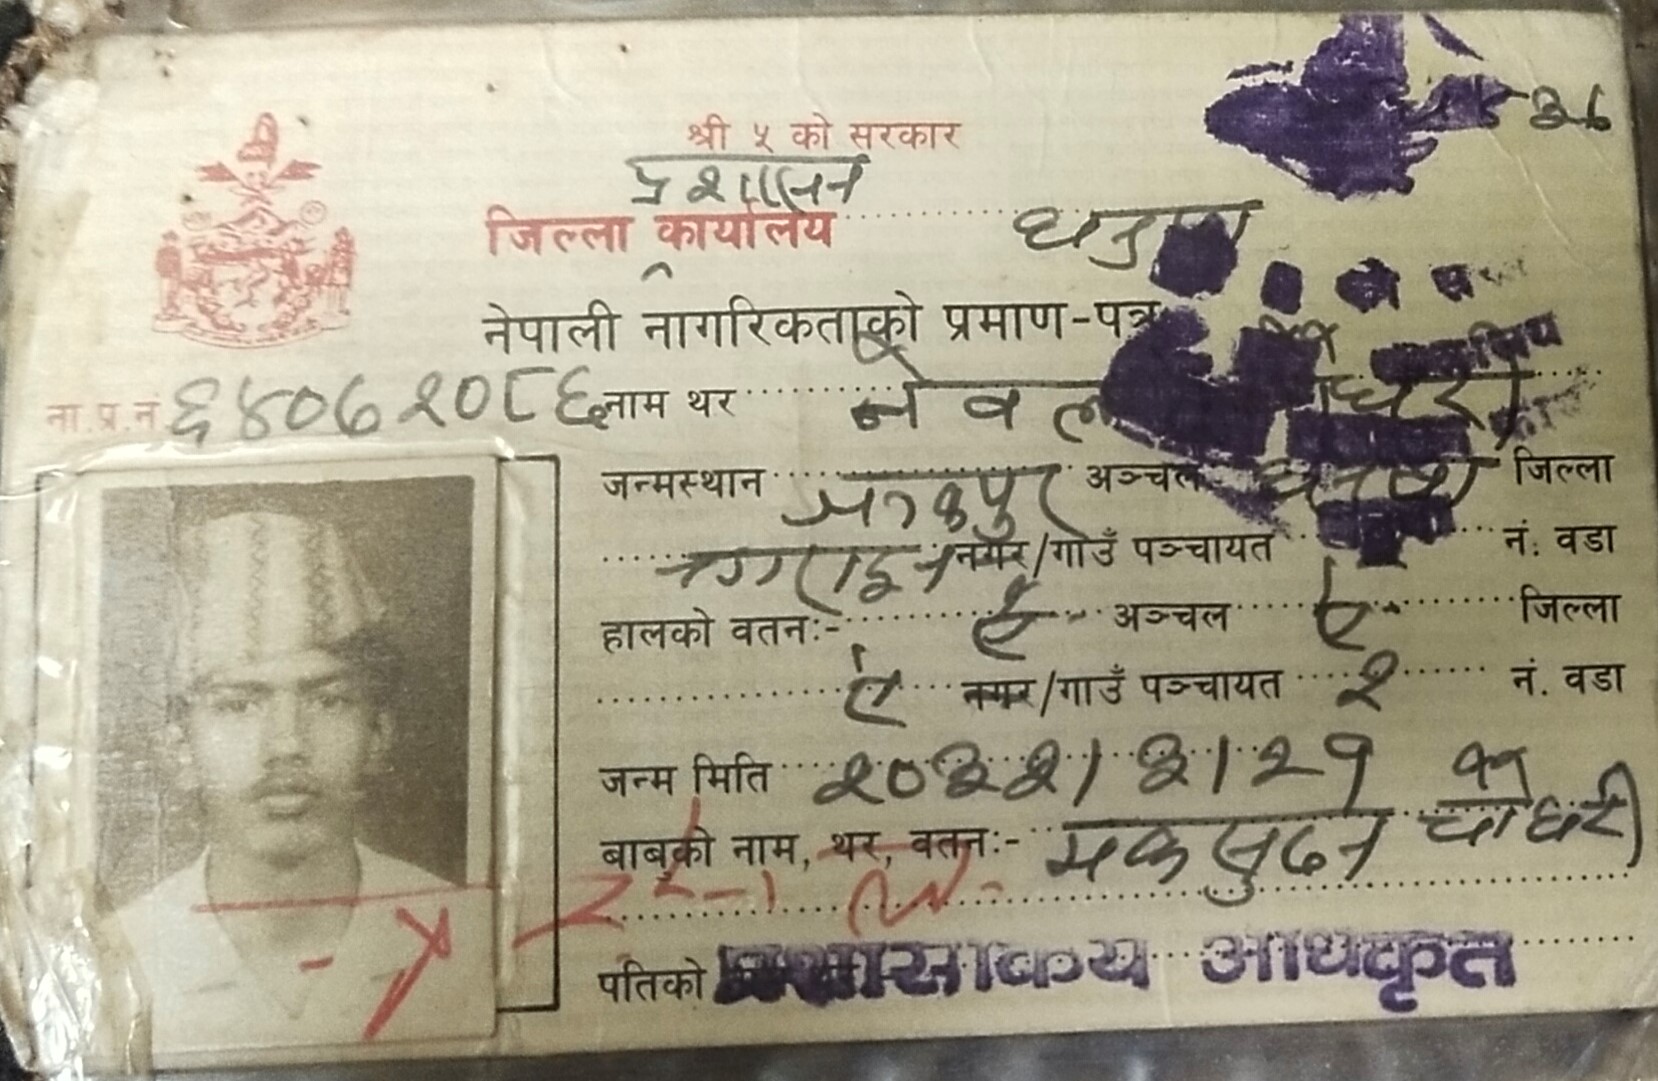 ३६
श्री ५ को सरकार
प्रशासन
जिल्ला कार्यालय
नेपाली नागरिकताको प्रमाण-पत्र
ना.प्र.नं. ६४०७२०८६ नाम थर नेवल
जन्मस्थान जनकपुर अञ्चल धनुषा जिल्ला
नगराइन नगर/गाउँ पञ्चायत नं. वडा
हालको वतन:- ऐ अञ्चल ऐ जिल्ला
ऐ नगर/गाउँ पञ्चायत २ नं. वडा
जन्म मिति २०३२।३।२१
बाबुको नाम, थर, वतन:- मकसुदन चौधरी
पतिको प्रशासकिय अधिकृत